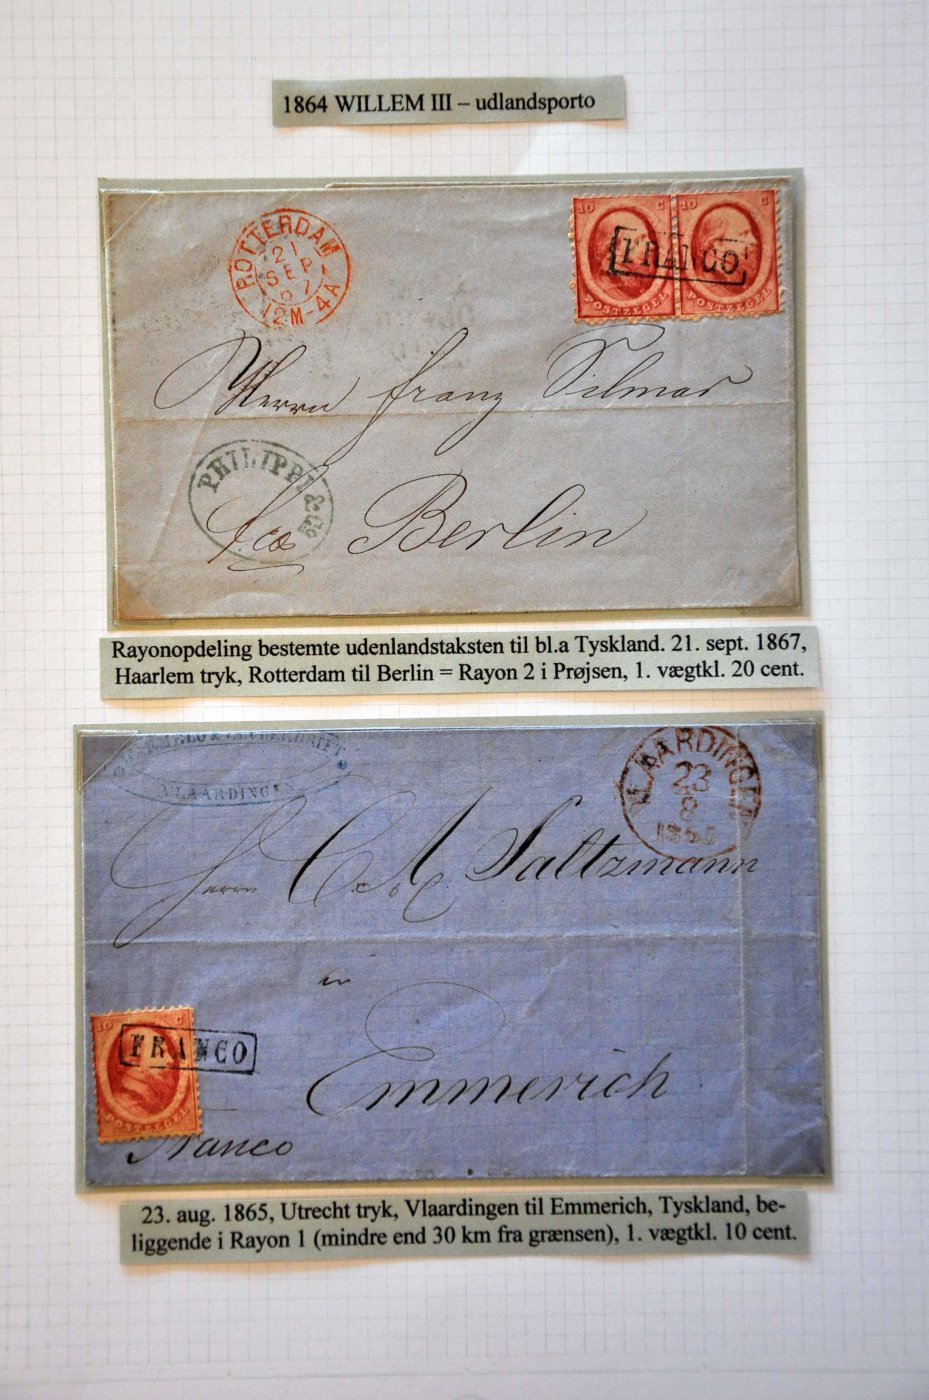 1864 WILLEM III – udlandsporto
ROTTERDAM
21
SEP
67
12M-4A
10 C
10 C
FRANCO
POSTZEGEL
POSTZEGEL
Herrn Franz Silmar
PHILIPPI & Co
Berlin
Rayonopdeling bestemte udenlandstaksten til bl.a Tyskland. 21. sept. 1867,
Haarlem tryk, Rotterdam til Berlin = Rayon 2 i Prøjsen, 1. vægtkl. 20 cent.
VLAARDINGEN
VLAARDINGEN
23
8
1865
Herrn C. A. Saltzmann
in
Emmerich
10 C
FRANCO
POSTZEGEL
Franco
23. aug. 1865, Utrecht tryk, Vlaardingen til Emmerich, Tyskland, be-
liggende i Rayon 1 (mindre end 30 km fra grænsen), 1. vægtkl. 10 cent.